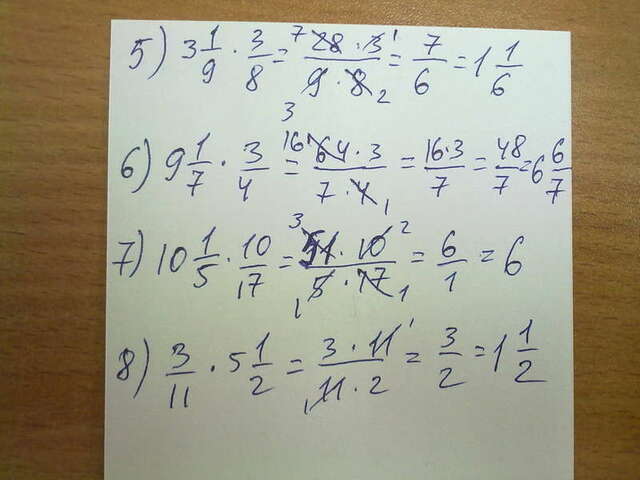 5) 3 1/9 · 3/8 = 28 · 3 / 9 · 8 = 7/6 = 1 1/6
6) 9 1/7 · 3/4 = 64 · 3 / 7 · 4 = 16·3/7 = 48/7 = 6 6/7
7) 10 1/5 · 10/17 = 51 · 10 / 5 · 17 = 6/1 = 6
8) 3/11 · 5 1/2 = 3 · 11 / 11 · 2 = 3/2 = 1 1/2